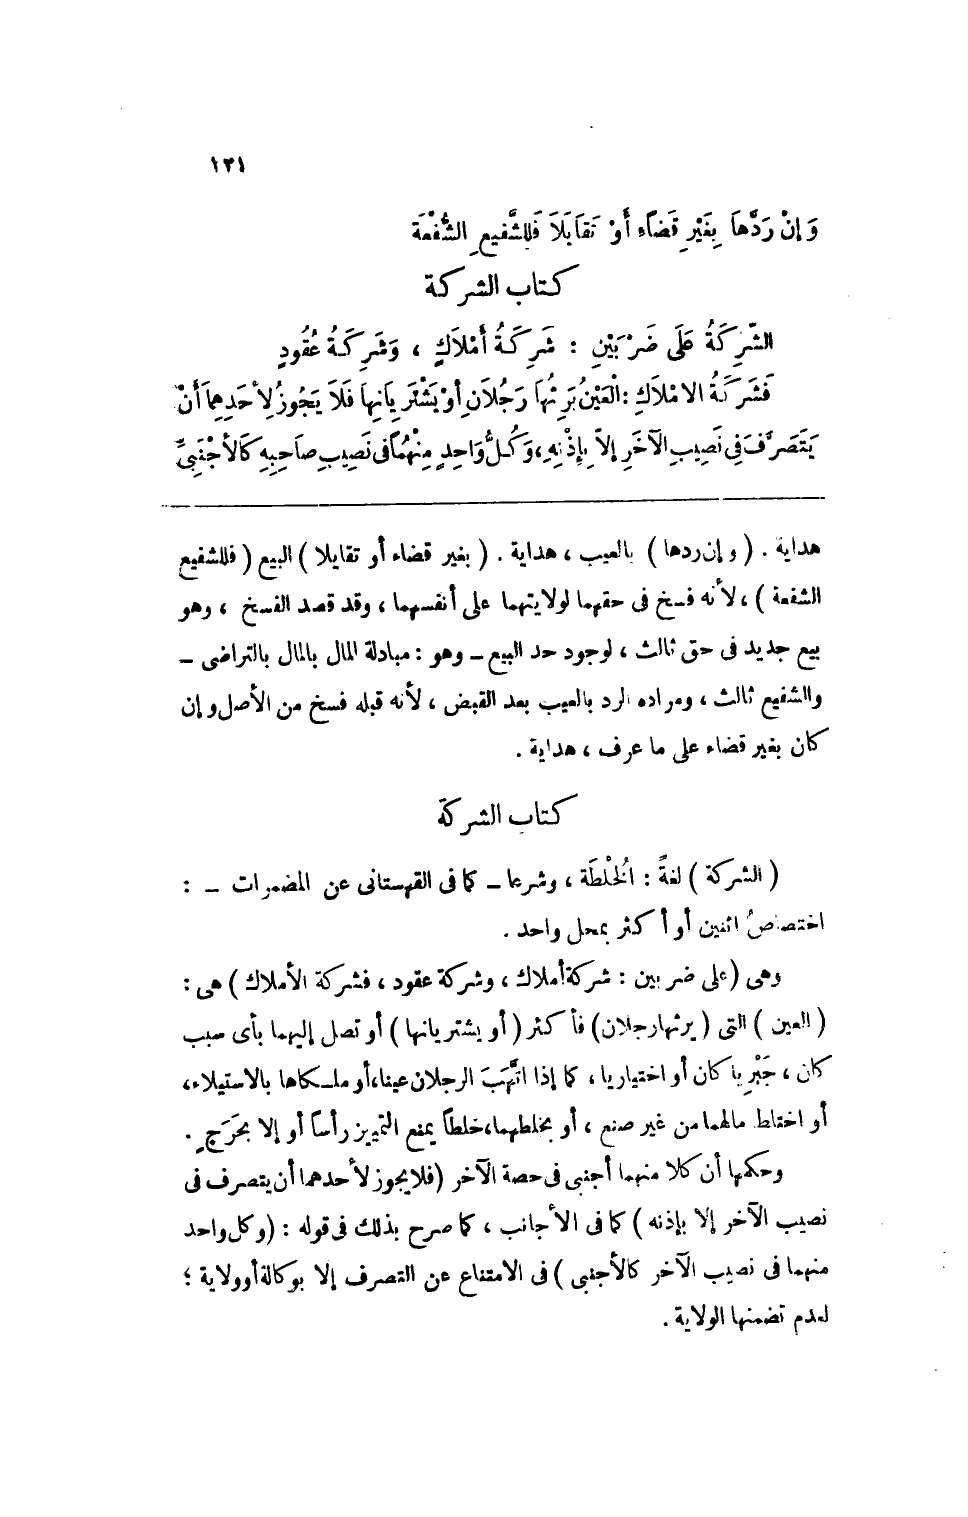 ١٢١
وَإِنْ رَدَّهَا بِغَيْرِ قَضَاءٍ أَوْ تَقَابَلَا فَلِلشَّفِيعِ الشُّفْعَةُ
كتاب الشركة
الشَّرِكَةُ عَلَى ضَرْبَيْنِ : شَرِكَةُ أَمْلَاكٍ ، وَشَرِكَةُ عُقُودٍ
فَشَرِكَةُ الامْلَاكِ : الْعَيْنُ يَرِثُهَا رَجُلَانِ أَوْ يَشْتَرِيَانِهَا فَلَا يَجُوزُ لِأَحَدِهِمَا أَنْ
يَتَصَرَّفَ فِي نَصِيبِ الآخَرِ إِلَّا بِإِذْنِهِ ، وَكُلُّ وَاحِدٍ مِنْهُمَا فِي نَصِيبِ صَاحِبِهِ كَالأَجْنَبِيِّ
هداية . ( وإن ردها ) بالعيب ، هداية . ( بغير قضاء أو تقايلا ) البيع ( فللشفيع
الشفعة ) ، لأنه فسخ فى حقهما لولايتهما على أنفسهما ، وقد قصد الفسخ ، وهو
بيع جديد فى حق ثالث ، لوجود حد البيع – وهو : مبادلة المال بالمال بالتراضى –
والشفيع ثالث ، ومراده الرد بالعيب بعد القبض ، لأنه قبله فسخ من الأصل وإن
كان بغير قضاء على ما عرف ، هداية .
كتاب الشركة
( الشركة ) لغةً : الْخُلْطَة ، وشرعا – كما فى القهستانى عن المضمرات – :
اختصاصُ اثنين أو أكثر بمحل واحد .
وهى ( على ضربين : شركة أملاك ، وشركة عقود ، فشركة الأملاك ) هى :
( العين ) التى ( يرثها رجلان ) فأكثر ( أو يشتريانها ) أو تصل إليهما بأى سبب
كان ، جَبْرِيا كان أو اختياريا ، كما إذا اتَّهَبَ الرجلان عينا ، أو ملكاها بالاستيلاء ،
أو اختلط مالهما من غير صنع ، أو بخلطهما ، خلطاً يمنع التمييز رأساً أو إلا بحَرَجٍ .
وحكمها أن كلا منهما أجنبى فى حصة الآخر ( فلا يجوز لأحدهما أن يتصرف فى
نصيب الآخر إلا بإذنه ) كما فى الأجانب ، كما صرح بذلك فى قوله : ( وكل واحد
منهما فى نصيب الآخر كالأجنبى ) فى الامتناع عن التصرف إلا بوكالة أو ولاية ؛
لعدم تضمنها الولاية .